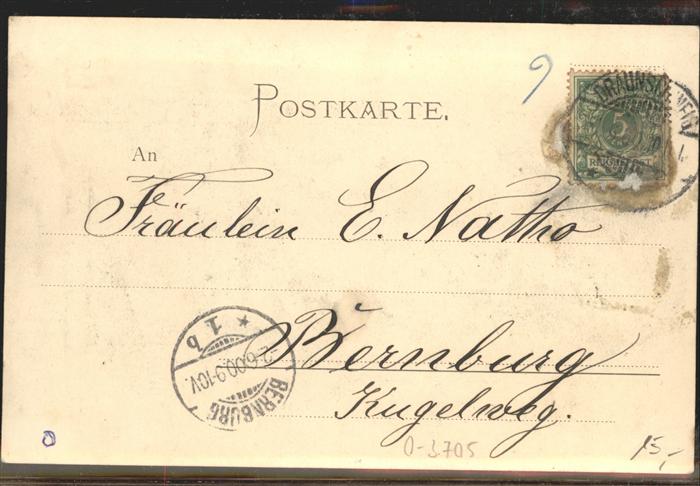 9
POSTKARTE.
BRAUNSCHWEIG
5
REICHSPOST
An
Fräulein E. Natho
Bernburg
Kugelweg.
BERNBURG
1 b
2.6.00.9-10V.
0-3705
15,-